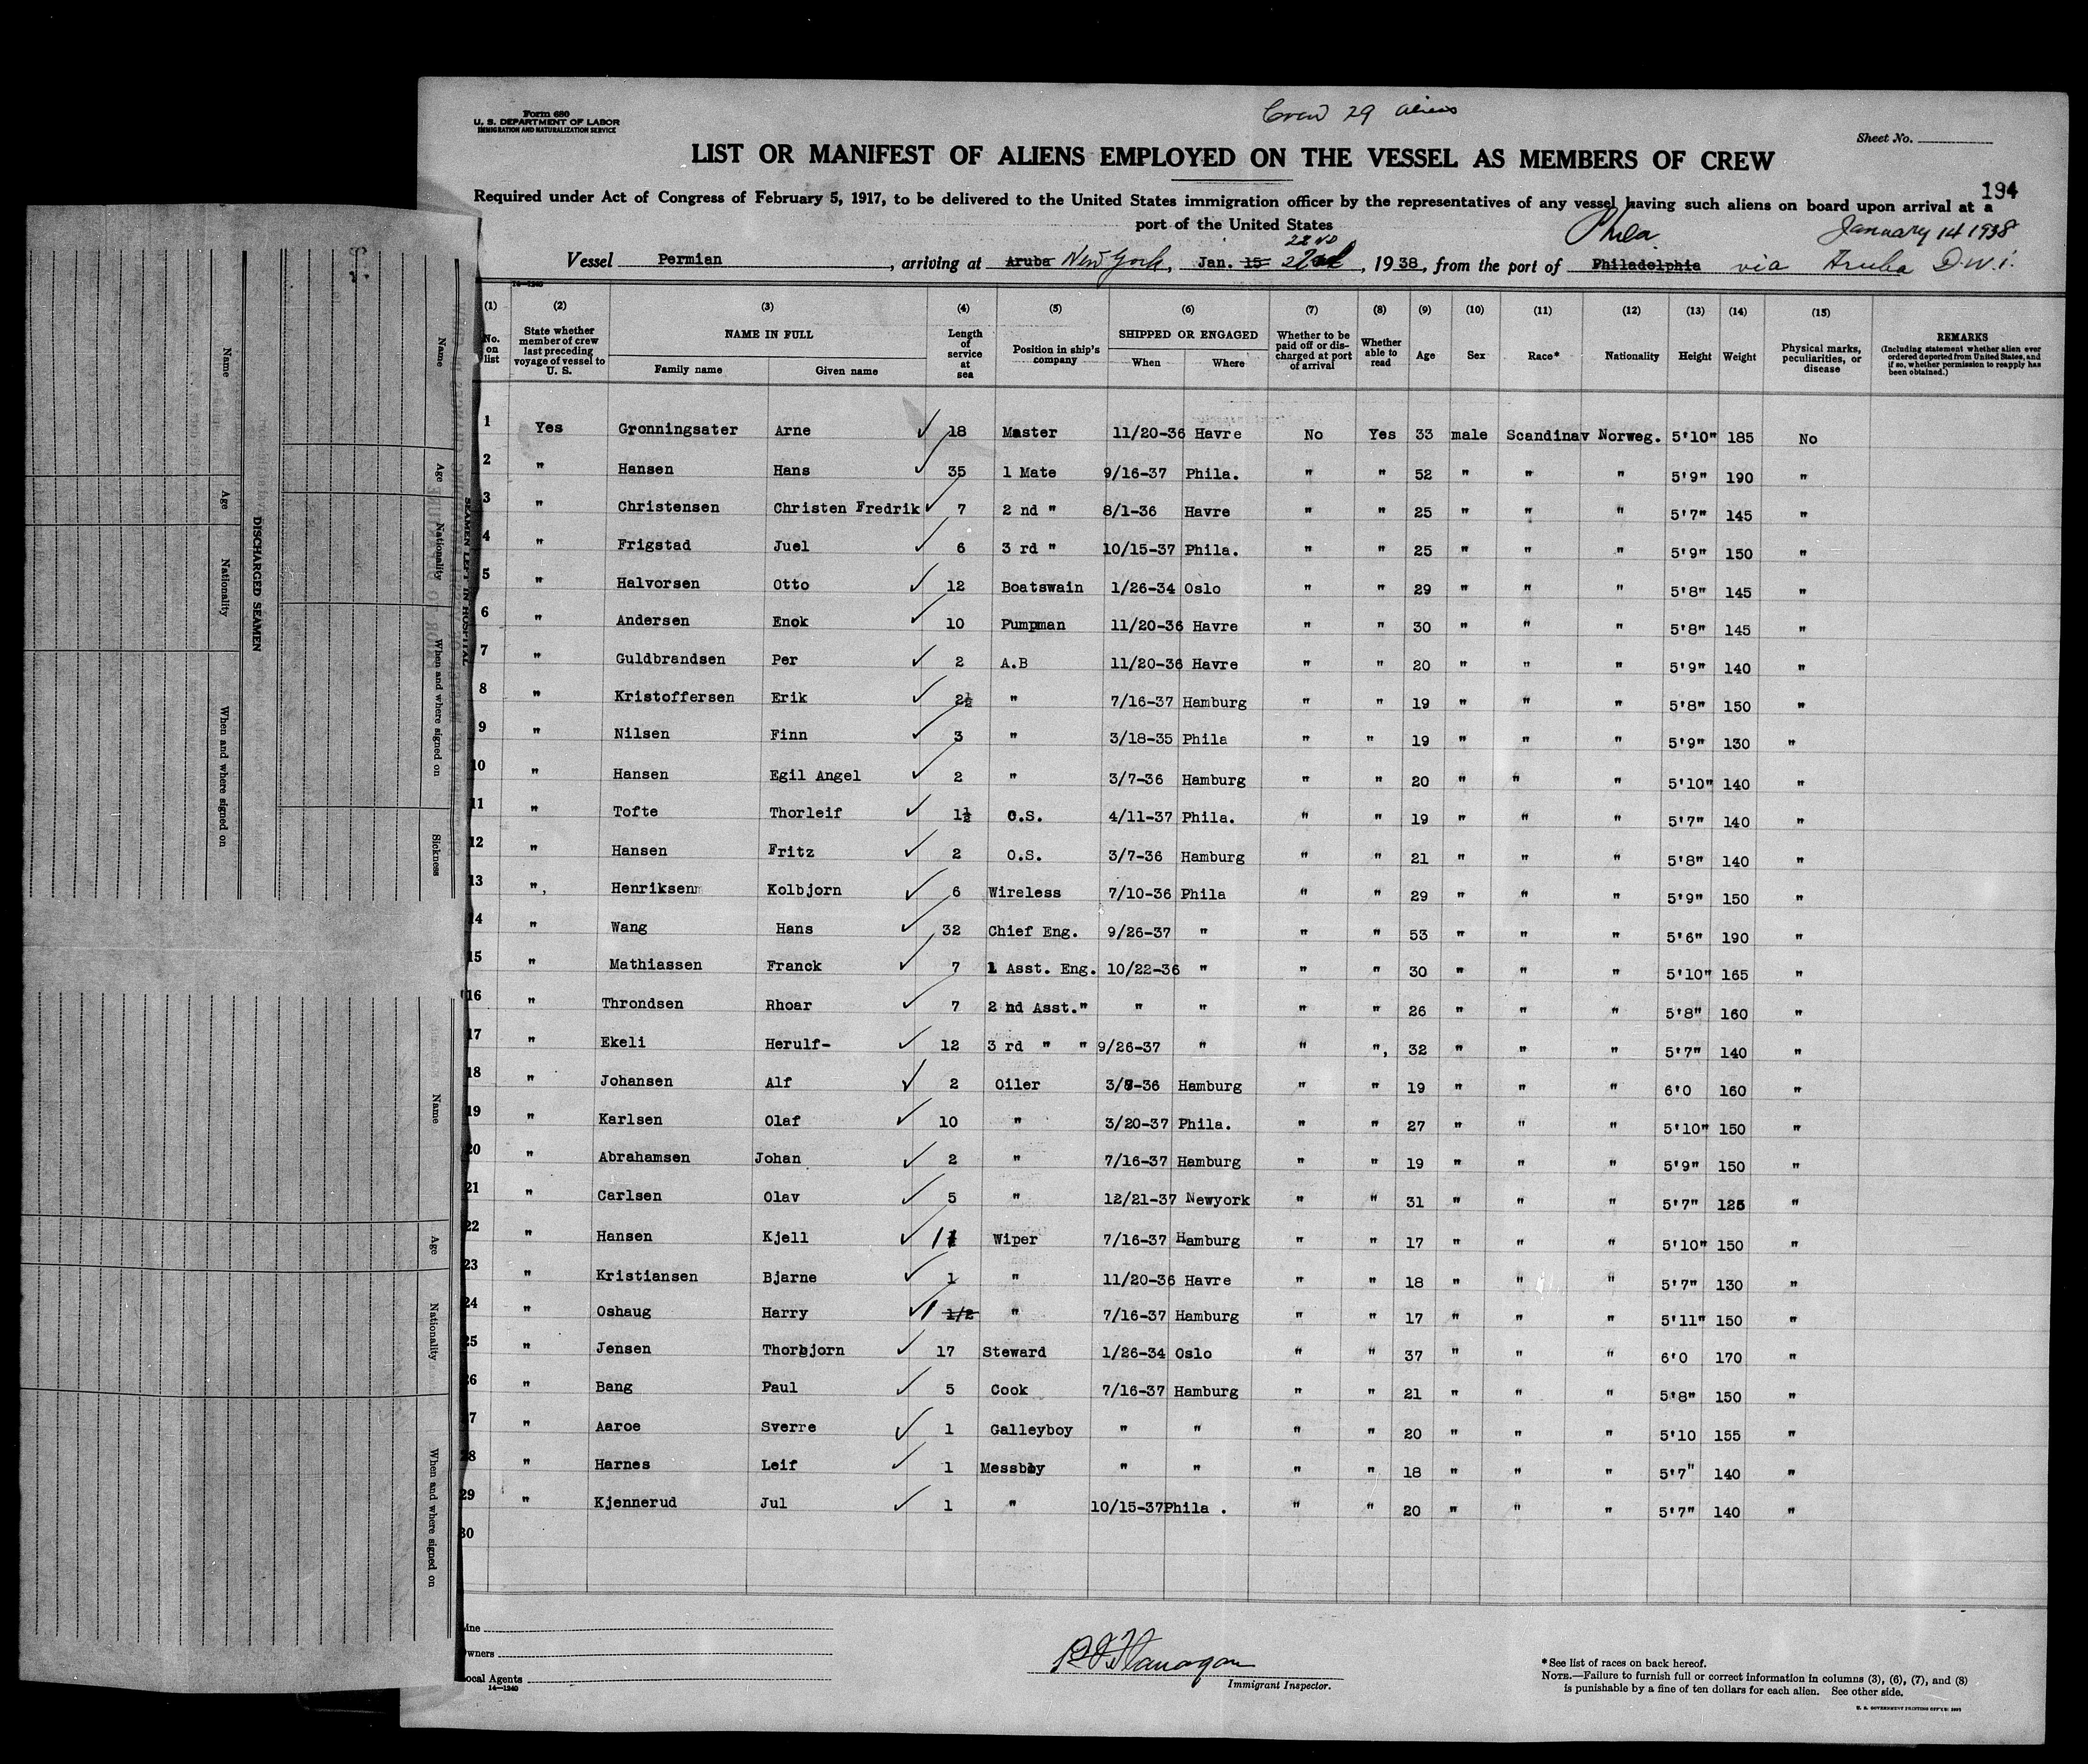 Form 680
U. S. DEPARTMENT OF LABOR
IMMIGRATION AND NATURALIZATION SERVICE
Crew 29 aliens
Sheet No.
LIST OR MANIFEST OF ALIENS EMPLOYED ON THE VESSEL AS MEMBERS OF CREW
194
Required under Act of Congress of February 5, 1917, to be delivered to the United States immigration officer by the representatives of any vessel having such aliens on board upon arrival at a
port of the United States
22nd Phila. January 14 1938
Vessel Permian, arriving at Aruba New York, Jan. 15 22nd, 1938, from the port of Philadelphia via Aruba D.W.I.
14—1240
(1) (2) (3) (4) (5) (6) (7) (8) (9) (10) (11) (12) (13) (14) (15)
No. on list State whether member of crew last preceding voyage of vessel to U. S. NAME IN FULL Family name Given name Length of service at sea Position in ship's company SHIPPED OR ENGAGED When Where Whether to be paid off or discharged at port of arrival Whether able to read Age Sex Race* Nationality Height Weight Physical marks, peculiarities, or disease REMARKS (Including statement whether alien ever ordered deported from United States, and if so, whether permission to reapply has been obtained.)
1 Yes Gronningsater Arne 18 Master 11/20-36 Havre No Yes 33 male Scandinav Norweg. 5'10" 185 No
2 " Hansen Hans 35 1 Mate 9/16-37 Phila. " " 52 " " " 5'9" 190 "
3 " Christensen Christen Fredrik 7 2 nd " 8/1-36 Havre " " 25 " " " 5'7" 145 "
4 " Frigstad Juel 6 3 rd " 10/15-37 Phila. " " 25 " " " 5'9" 150 "
5 " Halvorsen Otto 12 Boatswain 1/26-34 Oslo " " 29 " " " 5'8" 145 "
6 " Andersen Enok 10 Pumpman 11/20-36 Havre " " 30 " " " 5'8" 145 "
7 " Guldbrandsen Per 2 A.B 11/20-36 Havre " " 20 " " " 5'9" 140 "
8 " Kristoffersen Erik 2½ " 7/16-37 Hamburg " " 19 " " " 5'8" 150 "
9 " Nilsen Finn 3 " 3/18-35 Phila " " 19 " " " 5'9" 130 "
10 " Hansen Egil Angel 2 " 3/7-36 Hamburg " " 20 " " " 5'10" 140 "
11 " Tofte Thorleif 1½ O.S. 4/11-37 Phila. " " 19 " " " 5'7" 140 "
12 " Hansen Fritz 2 O.S. 3/7-36 Hamburg " " 21 " " " 5'8" 140 "
13 ", Henriksen Kolbjorn 6 Wireless 7/10-36 Phila " " 29 " " " 5'9" 150 "
14 " Wang Hans 32 Chief Eng. 9/26-37 " " " 53 " " " 5'6" 190 "
15 " Mathiassen Franck 7 1 Asst. Eng. 10/22-36 " " " 30 " " " 5'10" 165 "
16 " Throndsen Rhoar 7 2 nd Asst." " " " " 26 " " " 5'8" 160 "
17 " Ekeli Herulf- 12 3 rd " " 9/26-37 " " ", 32 " " " 5'7" 140 "
18 " Johansen Alf 2 Oiler 3/8-36 Hamburg " " 19 " " " 6'0 160 "
19 " Karlsen Olaf 10 " 3/20-37 Phila. " " 27 " " " 5'10" 150 "
20 " Abrahamsen Johan 2 " 7/16-37 Hamburg " " 19 " " " 5'9" 150 "
21 " Carlsen Olav 5 " 12/21-37 Newyork " " 31 " " " 5'7" 125 "
22 " Hansen Kjell 1 Wiper 7/16-37 Hamburg " " 17 " " " 5'10" 150 "
23 " Kristiansen Bjarne 1 " 11/20-36 Havre " " 18 " " " 5'7" 130 "
24 " Oshaug Harry 1 1/2 " 7/16-37 Hamburg " " 17 " " " 5'11" 150 "
25 " Jensen Thorbjorn 17 Steward 1/26-34 Oslo " " 37 " " " 6'0 170 "
26 " Bang Paul 5 Cook 7/16-37 Hamburg " " 21 " " " 5'8" 150 "
27 " Aaroe Sverre 1 Galleyboy " " " " 20 " " " 5'10 155 "
28 " Harnes Leif 1 Messboy " " " " 18 " " " 5'7" 140 "
29 " Kjennerud Jul 1 " 10/15-37 Phila . " " 20 " " " 5'7" 140 "
30
Line
Owners
Local Agents
14—1240
Immigrant Inspector.
*See list of races on back hereof.
NOTE.—Failure to furnish full or correct information in columns (3), (6), (7), and (8)
is punishable by a fine of ten dollars for each alien. See other side.
U. S. GOVERNMENT PRINTING OFFICE
SEAMEN LEFT IN HOSPITAL
Name Age Nationality When and where signed on Sickness
DISCHARGED SEAMEN
Name Age Nationality When and where signed on
Name Age Nationality When and where signed on